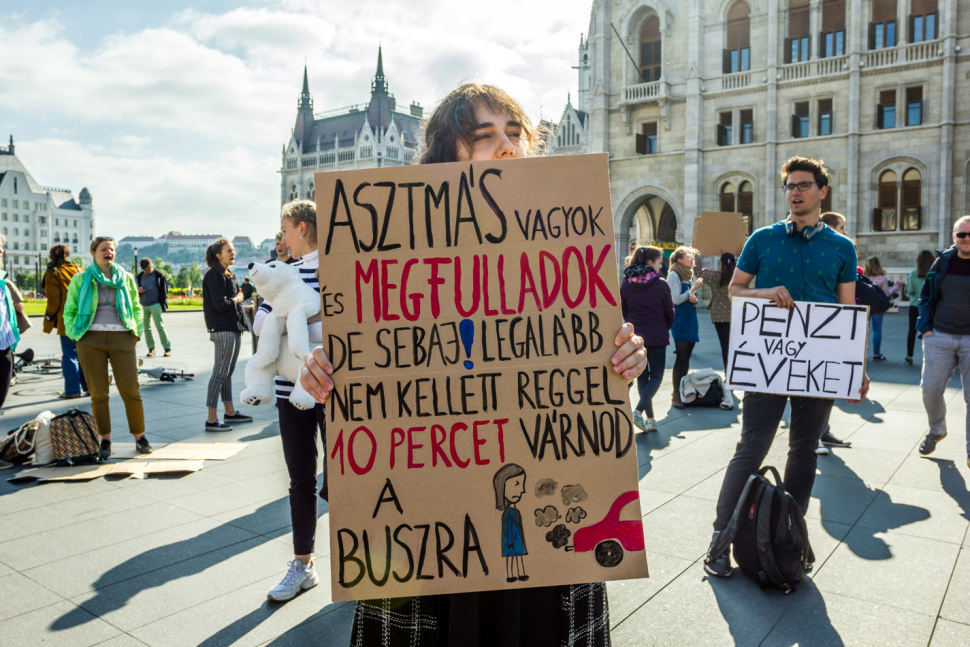 ASZTMÁS VAGYOK
ÉS MEGFULLADOK
DE SEBAJ! LEGALÁBB
NEM KELLETT REGGEL
10 PERCET VÁRNOD
A
BUSZRA
PÉNZT
VAGY
ÉVEKET